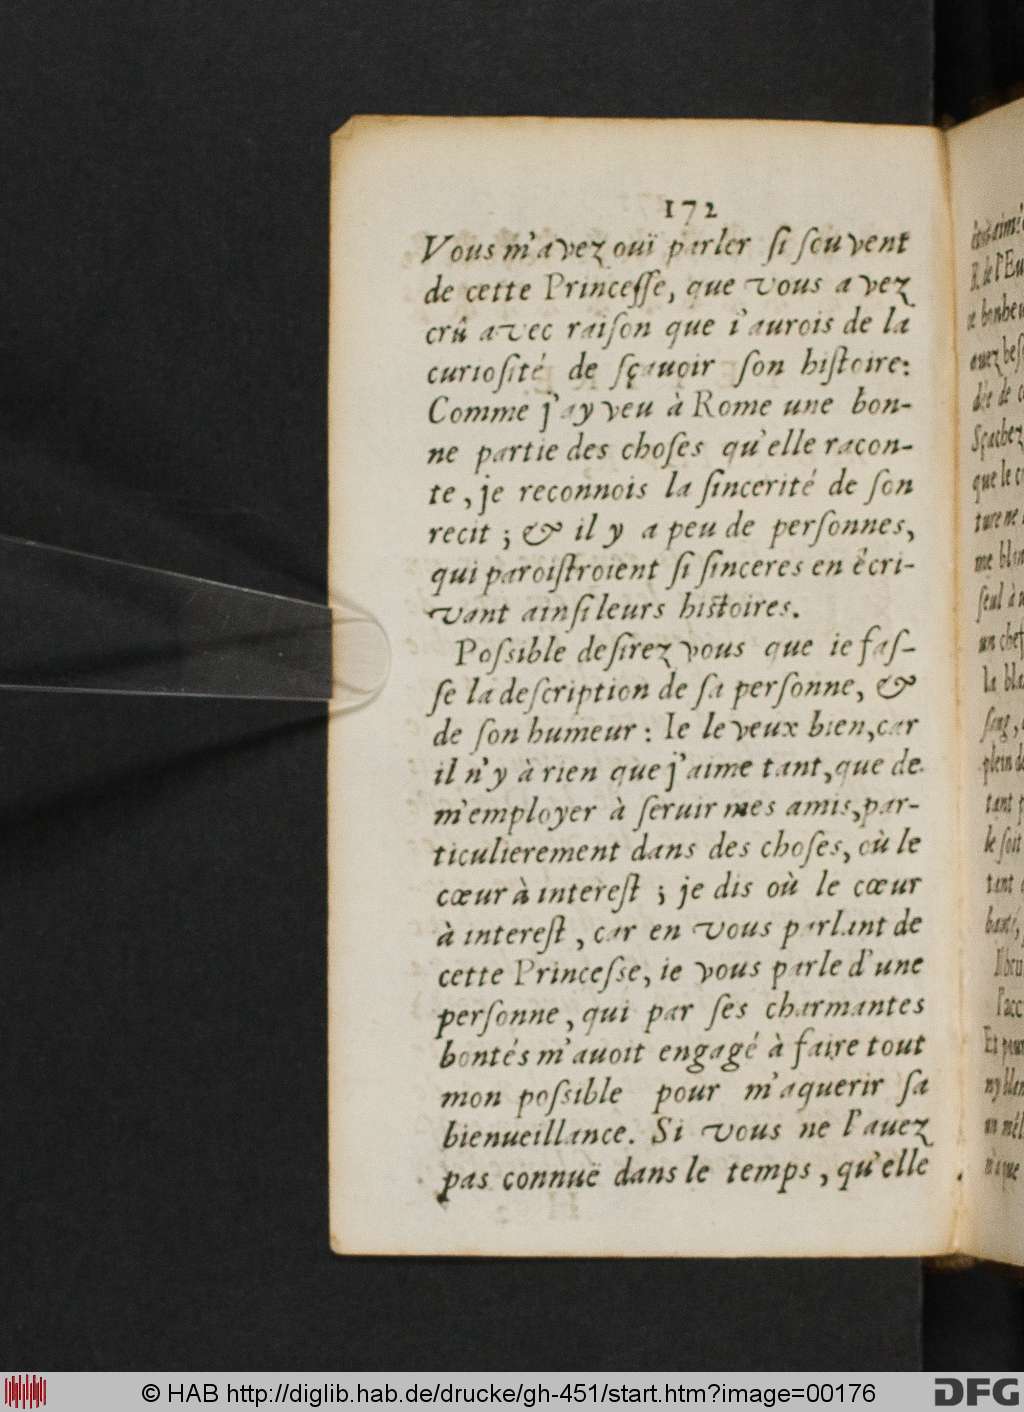 172
Vous m'avez ouï parler ſi ſouvent
de cette Princeſſe, que vous avez
crû avec raiſon que i'aurois de la
curioſité de ſçauoir ſon hiſtoire:
Comme j'ay veu à Rome une bon-
ne partie des choſes qu'elle racon-
te, je reconnois la ſincerité de ſon
recit; & il y a peu de perſonnes,
qui paroiſtroient ſi ſinceres en écri-
vant ainſi leurs hiſtoires.
Poſsible deſirez vous que ie faſ-
ſe la deſcription de ſa perſonne, &
de ſon humeur: Ie le veux bien, car
il n'y à rien que j'aime tant, que de
m'employer à ſeruir mes amis, par-
ticulierement dans des choſes, où le
cœur à intereſt; je dis où le cœur
à intereſt, car en vous parlant de
cette Princeſse, ie vous parle d'une
perſonne, qui par ſes charmantes
bontés m'auoit engagé à faire tout
mon poſsible pour m'aquerir ſa
bienueillance. Si vous ne l'auez
pas connuë dans le temps, qu'elle
R. de l'Eu
Sçachez
que le
ture ne
me blan
ſeul à
un chef
la bla
ſang,
plein de
tant
le ſoit
tant
l'acc
Et pour
ny blan
un mêl
m'a que
© HAB http://diglib.hab.de/drucke/gh-451/start.htm?image=00176
DFG